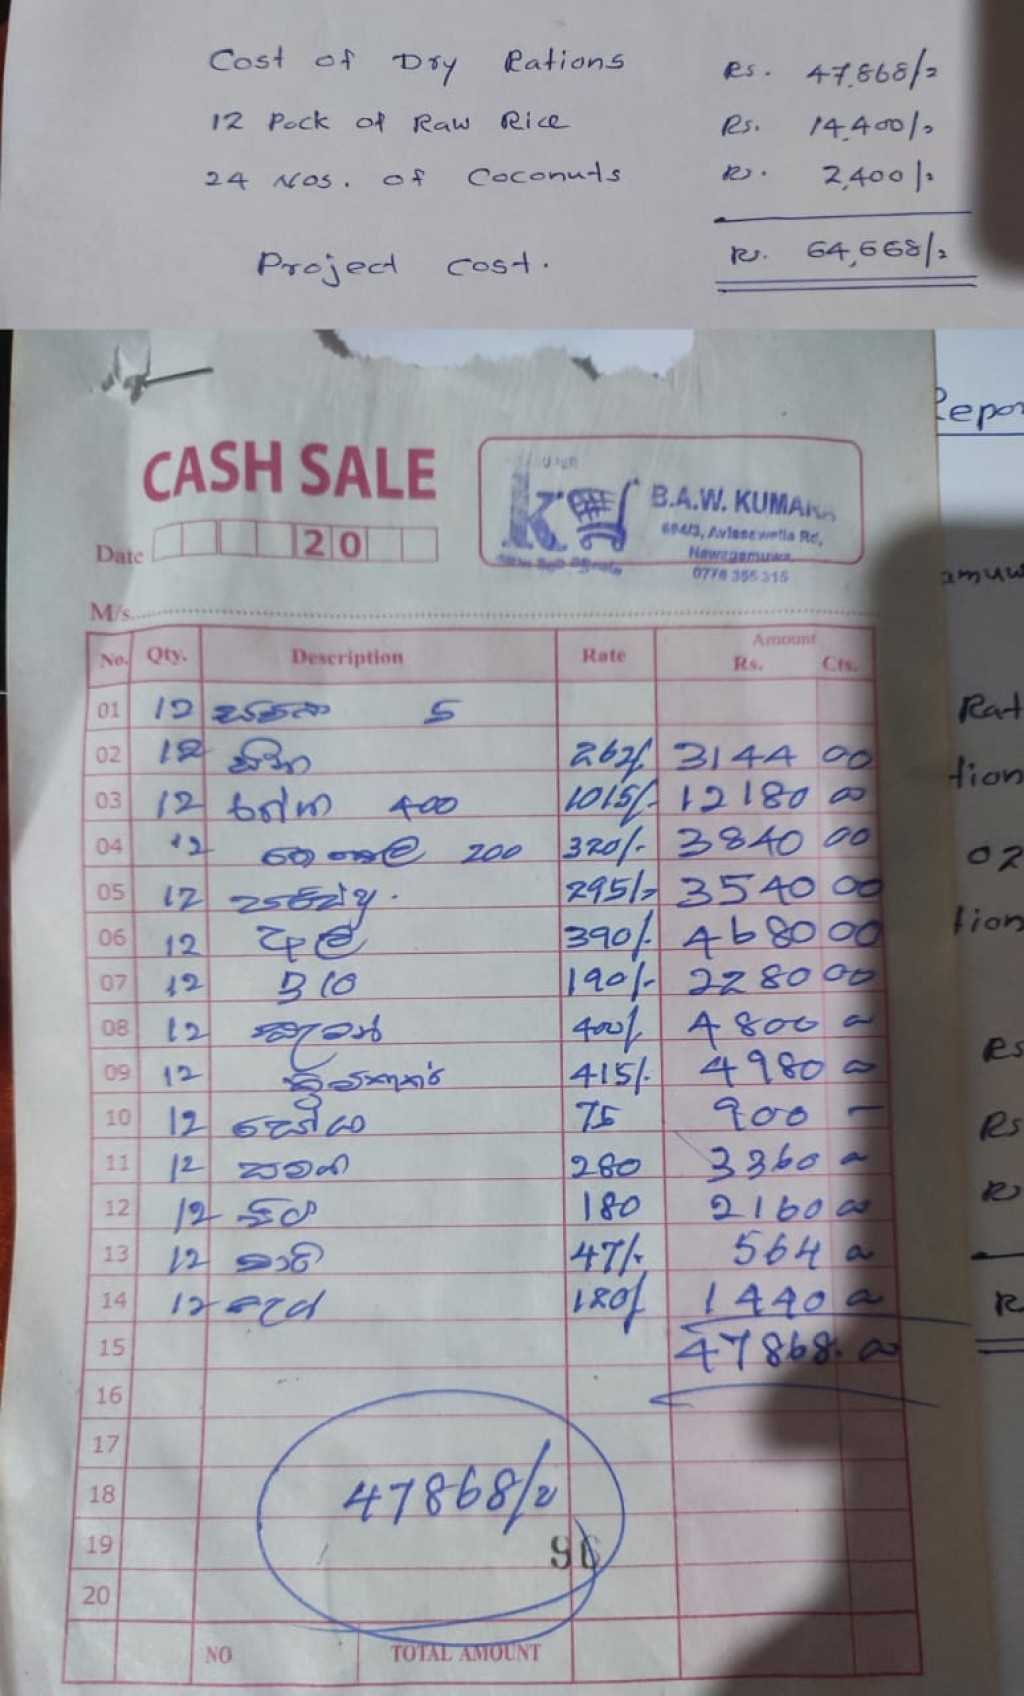 Cost of Dry Rations Rs. 47,868/=
12 Pack of Raw Rice Rs. 14,400/=
24 Nos. of Coconuts Rs. 2,400/=
Project Cost. Rs. 64,668/=
Repor
CASH SALE
B.A.W. KUMARA
694/3, Avissawella Rd,
Nawagamuwa,
0776 355 315
Date 20
amuw
M/s
No. Qty. Description Rate Amount
Rs. Cts.
01 12 5
02 12 සීනි 262/- 3144 00
03 12 400 1015/- 12180 00
04 12 තේ කොල 200 320/- 3840 00
05 12 පරිප්පු 295/- 3540 00
06 12 390/- 4680 00
07 12 190/- 2280 00
08 12 400/- 4800 00
09 12 415/- 4980 00
10 12 75 900 -
11 12 සමන් 280 3360 00
12 12 180 2160 00
13 12 47/- 564 00
14 12 120/- 1440 00
15 47868.00
16
17
18 47868/=
19 96
20
NO TOTAL AMOUNT
Rat
tion
02
tion
Rs
Rs
R
R